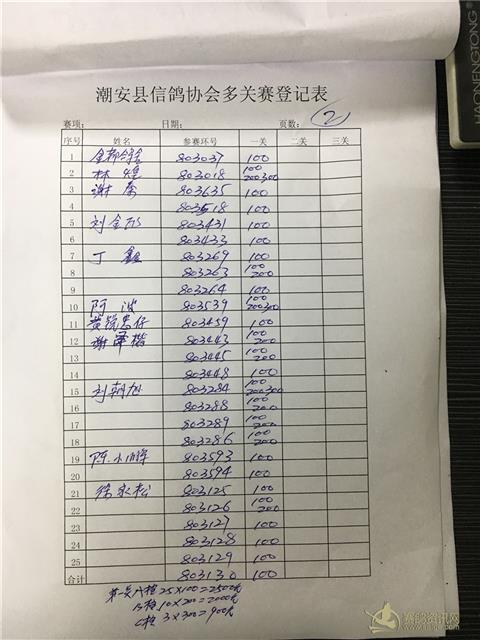 HAONENGTONG
潮安县信鸽协会多关赛登记表
赛项: 日期: 页数: 2
序号 姓名 参赛环号 一关 二关 三关
1 803037 100
2 林煌 803018 100 200 300
3 谢泰 803635 100
4 803518 100
5 刘金彤 803431 100
6 803433 100
7 丁鑫 803269 100
8 803263 100 200
9 803264 100
10 阿波 803539 100 200 300
11 803459 100
12 谢泽楷 803443 100 200
13 803445 100 200
14 803448 100
15 刘朝旭 803284 100 200 300
16 803288 100 200
17 803289 100 200
18 803286 100 200
19 陈小鹏 803593 100
20 803594 100
21 徐永松 803125 100
22 803126 100 200
23 803127 100
24 803128 100
25 803129 100
合计 803130 100
第一关A档 25×100=2500元
B档 10×200=2000元
C档 3×300=900元
赛鸽资讯网